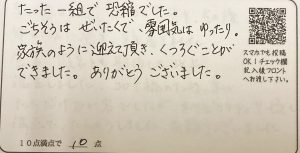 たった一組で恐縮でした。
ごちそうは ぜいたくで、雰囲気は ゆったり。
家族のように迎えて頂き、くつろぐことが
できました。ありがとうございました。
スマホでも投稿
OK！チェック欄
記入後フロント
へお渡し下さい。
10点満点で 10 点